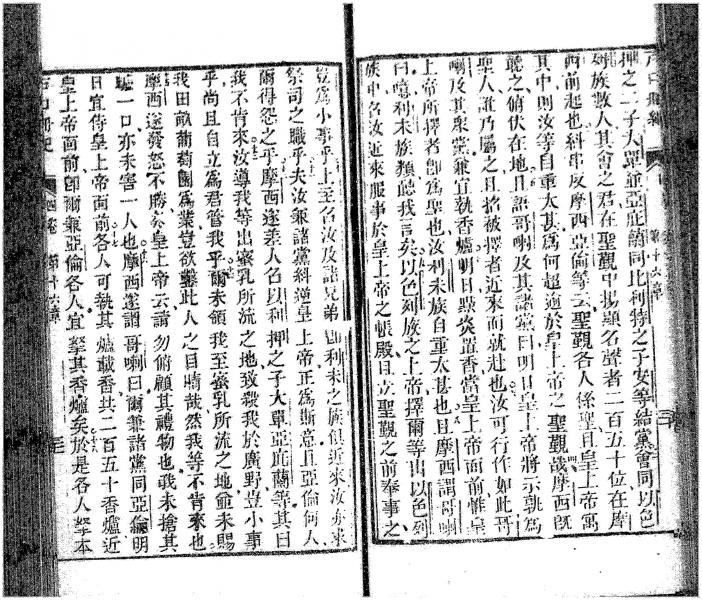 第十六章
押之二子大單並亞庇蘭同比利特之子安等結黨會同以色
列族數人其會之君在聖覲中揚顯名聲者二百五十位在摩
西前起也糾串反摩西亞倫等云聖覲各人係聖且皇上帝寓
其中則汝等自重太甚為何超逾於皇上帝之聖覲哉摩西既
聽之俯伏在地且語哥喇及其諸黨曰明日皇上帝將示孰為
聖人誰乃屬之且將被擇者近來而就赴也汝可行作如此哥
喇及其衆黨兼宜執香爐明日點炎置香當皇上帝面前惟皇
上帝所擇者即為聖也汝利未族自重太甚也且摩西謂哥喇
曰噫利未族類聽我言矣以色列族之上帝擇爾等出以色列
族中名汝近來服事於皇上帝之帳殿且立聖覲之前奉事之
豈為小事乎上至名汝及諸兄弟即利未之族俱近來汝亦求
祭司之職乎夫汝兼諸黨糾違皇上帝正為斯意且亞倫何人
爾得怨之乎摩西遂差人召以利押之子大單亞庇蘭等其曰
我不肯來汝導我等出蜜乳所流之地致殺我於廣野豈小事
乎尚且自立為君管我乎爾未領我至蜜乳所流之地並未賜
我田畝葡萄園為業豈欲鑿此人之目睛哉然我等不肯來也
摩西遂發怒不勝奏皇上帝云請勿俯顧其禮物也我未搶其
驢一口亦未害一人也摩西遂謂哥喇曰爾兼諸黨同亞倫明
日宜侍皇上帝面前各人可執其爐載香共二百五十香爐近
皇上帝面前即爾兼亞倫各人宜拏其香爐矣於是各人拏本
四卷 第十六章 三